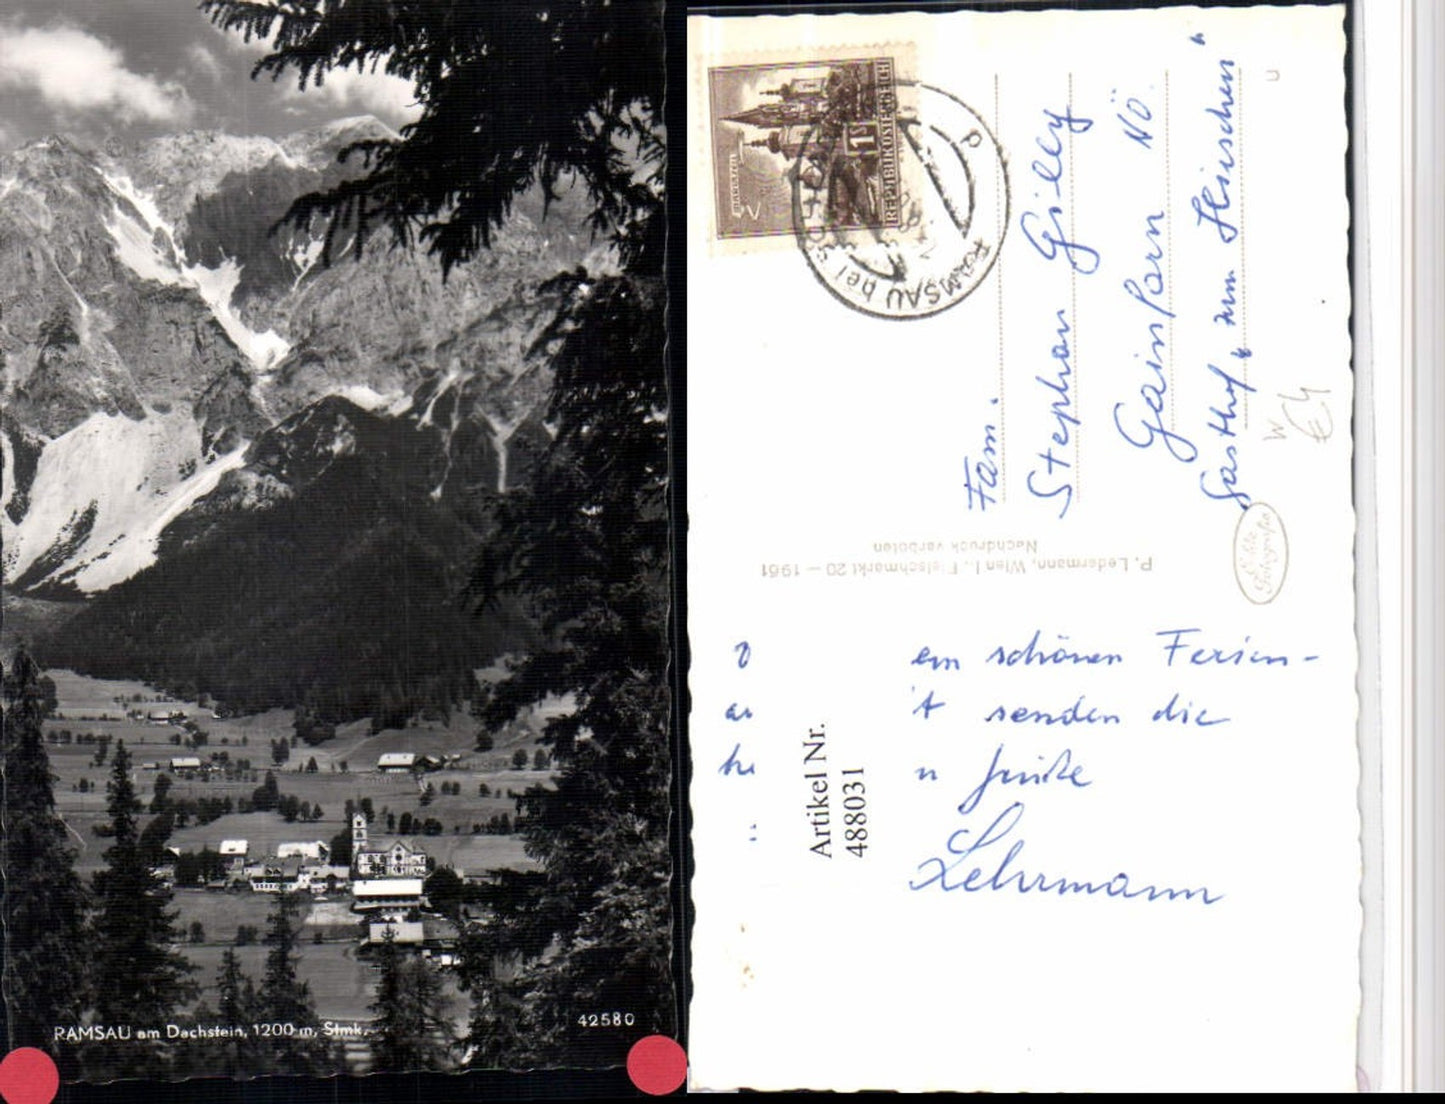 RAMSAU am Dachstein, 1200 m, Stmk.
42580
MARIAZELL
1S
REPUBLIK ÖSTERREICH
RAMSAU bei
Fam.
Stephan Gilly
Gainfarn NÖ.
Gasthof „zum Hirschen"
u
W
€4
P. Ledermann, Wien I., Fleischmarkt 20 – 1961
Nachdruck verboten
Echte
Fotografie
schönen Ferien-
senden die
Lehrmann
Artikel Nr.
488031